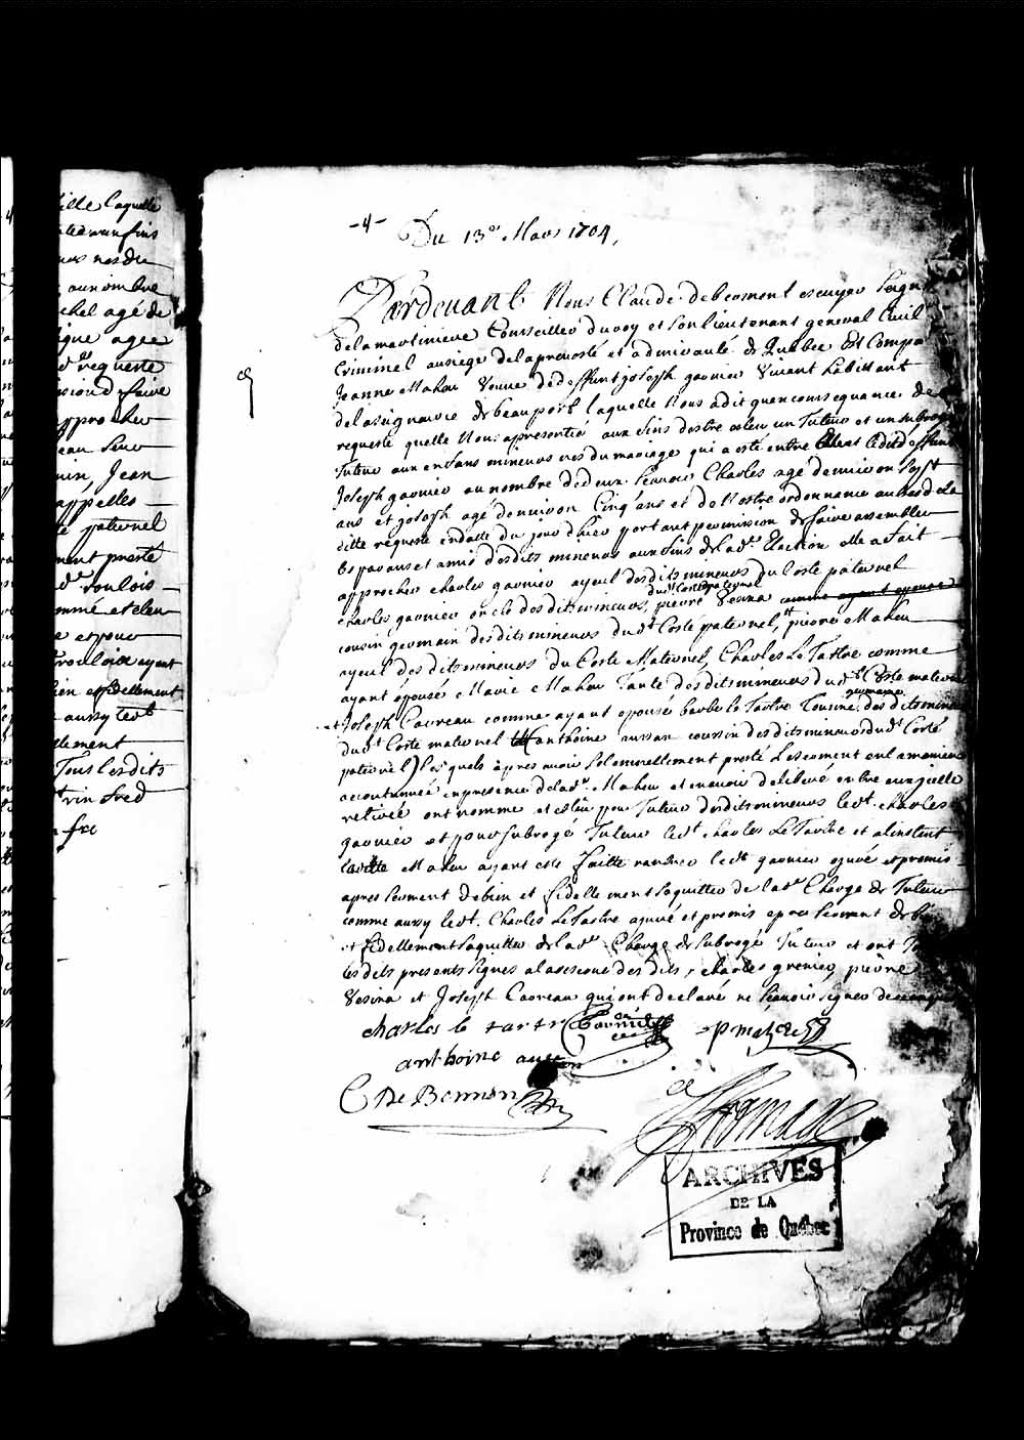 ille laquelle
aux fins
nes du
au nombre
chel agé de
ique agee
d.e requeste
faire
approcher
eau
min, Jean
appelles
paternel
ment presté
d.e
omme et eleu
e et pour
ayant
ien et fidellement
aussy led.t
llement
Tous lesdits
-4-
Du 13.e Mars 1704,
Pardevant Nous Claude debermont escuyer Seign
delamartiniere Conseiller du roy et son lieutenant general Civil
Criminel ausiege delaprevosté et admirauté de Quebec Est Compa
Jeanne Maheu veuve de deffunt joseph garnier vivant habittant
delaseigneurie de beauport laquelle Nous adit quen consequance de
requeste quelle Nous apresentée aux fins destre esleu un Tuteur et un subrogé
Tuteur aux enfans mineurs nes du mariage qui a esté entre Elle et ledit deffunt
Joseph garnier au nombre de deux scavoir Charles agé denviron sept
ans et joseph agé denviron Cinq ans et de Nostre ordonnance au bas de la
ditte requeste endatte du jour dhier portant permission de faire assembler
les parans et amis desdits mineurs aux fins de lad.e Election elle a fait
approcher charles garnier ayeul desdits mineurs du Coste paternel
dud.t Coste paternel
charles garnier oncle desdits mineurs, pierre Vesina comme ayant epousé
cousin germain desdits mineurs dud.t Coste paternel, pierre Maheu
ayeul desdits mineurs du Coste Maternel, Charles Le Tartre comme
ayant épousé Marie Maheu Tante desdits mineurs dud.t Coste maternel
germaine
+ Joseph Carreau comme ayant epousé barbe le Tartre Cousine desdits mineurs
dud.t Coste maternel anthoine aussan coussin desdits mineurs dud.t Coste
paternel) lesquels apres avoir solemnellement presté Le serment enla maniere
acoutumée enpresence de lad.e Maheu et en avoir deliberé entre eux icelle
retirée ont nommé et esleu pour Tuteur desdits mineurs led.t charles
garnier et pour subrogé Tuteur led.t charles Le Tartre et alinstant
laditte Maheu ayant esté faitte rentrer led.t garnier ajuré et promis
apres serment de bien et fidellement saquitter de lad.e Charge de Tuteur
comme aussy led.t Charles Le Tartre ajuré et promis apres serment de bien
et fidellement saquitter de lad.e Charge de subrogé Tuteur et ont
lesdits presents signes a la reserve desdits charles grenier, pierre
Vesina et Joseph Carreau qui ont declaré ne scavoir signer de
charles le tartre p maheu
anthoine aussan
C De Bermen
ARCHIVES
DE LA
Province de Québec